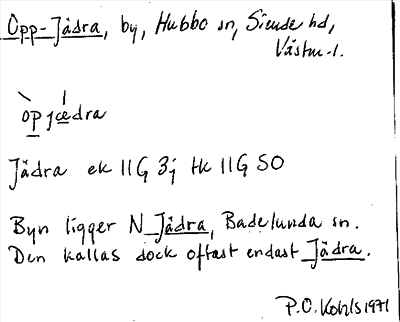 Opp-Jädra, by, Hubbo sn, Siende hd,
Västm-l.
òpjǽdra
Jädra ek 11G 3j tk 11G SO
Byn ligger N Jädra, Badelunda sn.
Den kallas dock oftast endast Jädra.
P.O. Kohls 1971